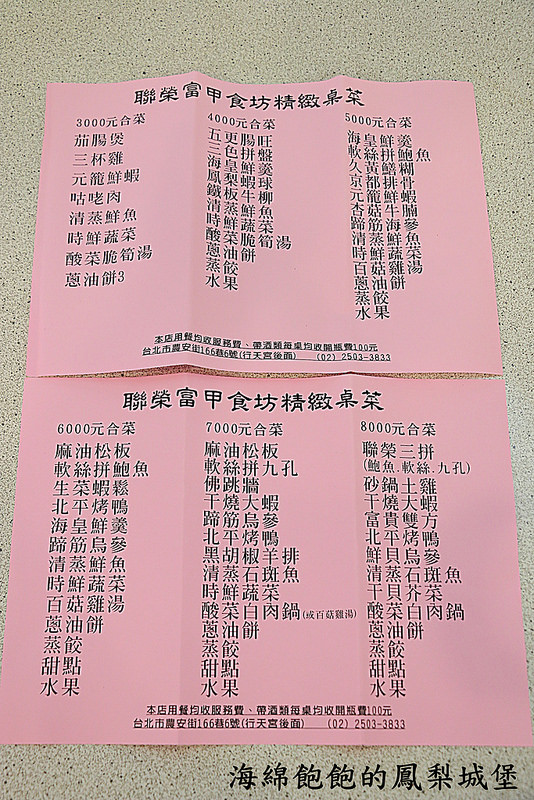 聯榮富甲食坊精緻桌菜
3000元合菜
茄腸煲
三杯雞
元籠鮮蝦
咕咾肉
清蒸鮮魚
時鮮蔬菜
酸菜脆筍湯
蔥油餅3
4000元合菜
五更腸旺
三色拼盤
海皇鮮羹
鳳梨蝦球
鐵板牛柳
清蒸鮮魚
時鮮蔬菜
酸菜脆筍湯
蔥油餅
蒸餃
水果
5000元合菜
海皇鮮羹
軟絲拼鮑魚
久黃鱔糊
京都排骨
元籠鮮蝦
杏菇牛腩
蹄筋海參
清蒸鮮魚
時鮮蔬菜
百菇雞湯
蔥油餅
蒸餃
水果
本店用餐均收服務費、帶酒類每桌均收開瓶費100元
台北市農安街166巷6號(行天宮後面) (02) 2503-3833
聯榮富甲食坊精緻桌菜
6000元合菜
麻油松板
軟絲拼鮑魚
生菜蝦鬆
北平烤鴨
海皇鮮羹
蹄筋烏參
清蒸鮮魚
時鮮蔬菜
百菇雞湯
蔥油餅
蒸餃
甜點
水果
7000元合菜
麻油松板
軟絲拼九孔
佛跳牆
干燒大蝦
蹄筋烏參
北平烤鴨
黑胡椒羊排
清蒸石斑魚
時鮮蔬菜
酸菜白肉鍋(或百菇雞湯)
蔥油餅
蒸餃
甜點
水果
8000元合菜
聯榮三拼
(鮑魚.軟絲.九孔)
砂鍋土雞
干燒大蝦
富貴雙方
北平烤鴨
鮮貝烏參
清蒸石斑魚
干貝芥菜
酸菜白肉鍋
蔥油餅
蒸餃
甜點
水果
本店用餐均收服務費、帶酒類每桌均收開瓶費100元
台北市農安街166巷6號(行天宮後面) (02) 2503-3833
海綿飽飽的鳳梨城堡